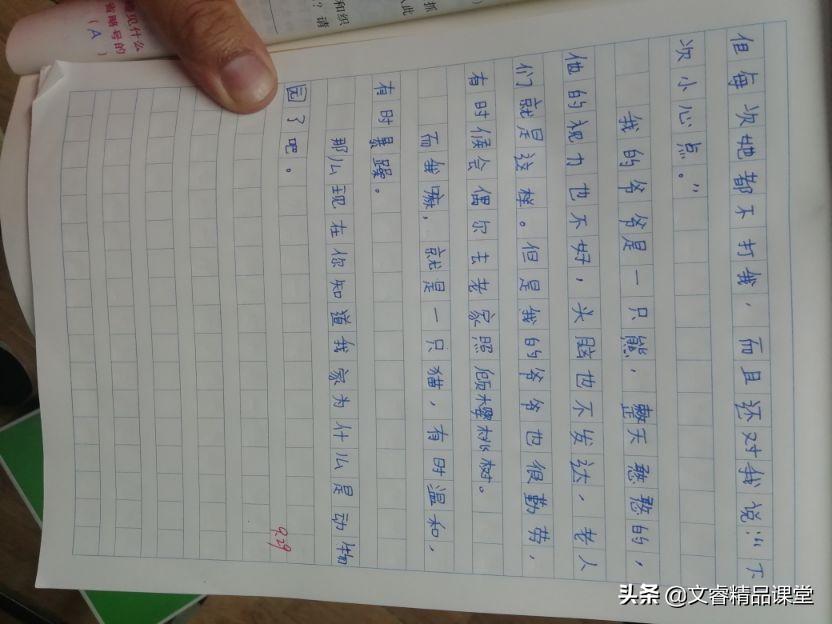 但每次她都不打我，而且还对我说：“下
次小心点。”
我的爷爷是一只熊，整天憨憨的，
他的视力也不好，头脑也不发达，老人
们就是这样。但是我的爷爷也很勤劳，
有时候会偶尔去老家照顾樱桃树。
而我嘛，就是一只猫，有时温和，
有时暴躁。
那么现在你知道我家为什么是动物
园了吧。
9.29
抓
和织
？请
见什么
省略号的
（A）
头条 @文睿精品课堂